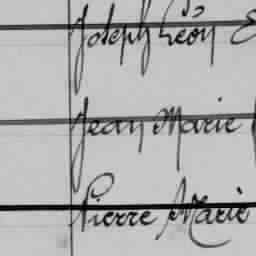 Joseph Léon
Jean Marie
Pierre Marie